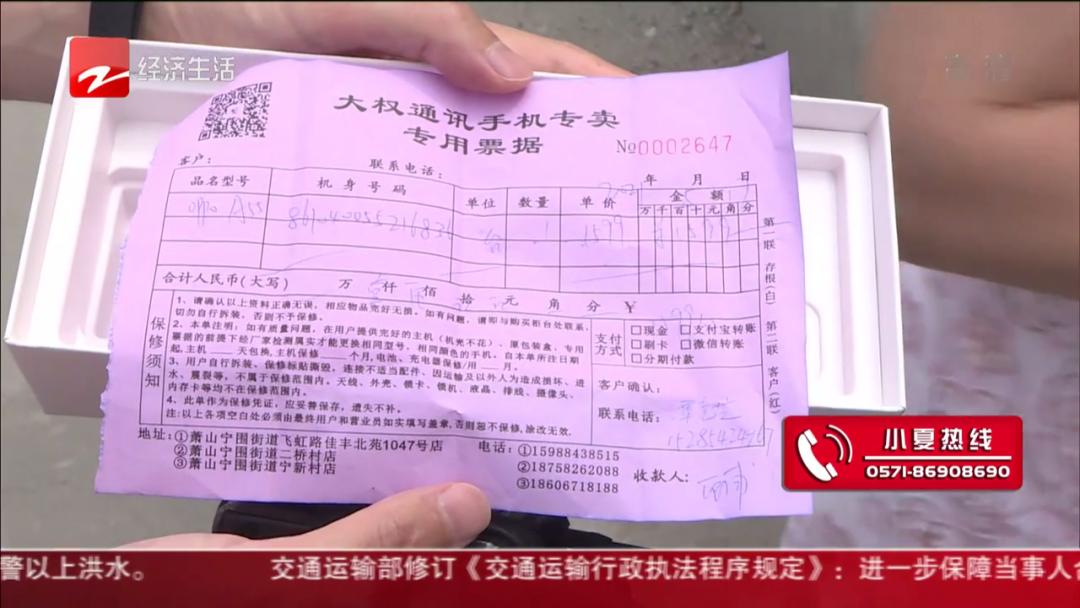 经济生活
大权通讯手机专卖
专用票据
No0002647
客户：
联系电话：
年 月 日
品名型号 机身号码 单位 数量 单价 金额
万 千 百 十 元 角 分
oppo A55 1 1599
合计人民币(大写) 万 仟 佰 拾 元 角 分 ¥
保修须知
1、请确认以上资料正确无误，相应物品完好无损。如有问题，请即与购买柜台处联系，
切勿自行拆装，否则不予保修。
2、本单注明：如有质量问题，在用户提供完好的主机（机壳不花）、原包装盒、专用
票据的前提下经厂家检测属实才能更换相同型号，相同颜色的手机。自本单所注日期
起,主机____天包换,主机保修____个月,电池、充电器保修/用____月。
3、用户自行拆装、保修标贴撕毁，连接不适当配件、因运输及以外人为造成损坏、进
水、震裂等，不属于保修范围内。天线、外壳、锁卡、锁机、液晶、排线、摄像头、
内存卡等均不在保修范围内。
4、此单作为保修凭证，应妥善保存，遗失不补。
注:以上各项空白处必须由最终用户和营业员如实填写盖章,否则恕不保修,涂改无效.
支付方式
□现金 □支付宝转账
□刷卡 □微信转账
□分期付款
客户确认：
联系电话：
第一联 存根(白) 第二联 客户(红)
地址：①萧山宁围街道飞虹路佳丰北苑1047号店
②萧山宁围街道二桥村店
③萧山宁围街道宁新村店
电话：①15988438515
②18758262088
③18606718188
收款人：
小夏热线
0571-86908690
警以上洪水。 交通运输部修订《交通运输行政执法程序规定》：进一步保障当事人合